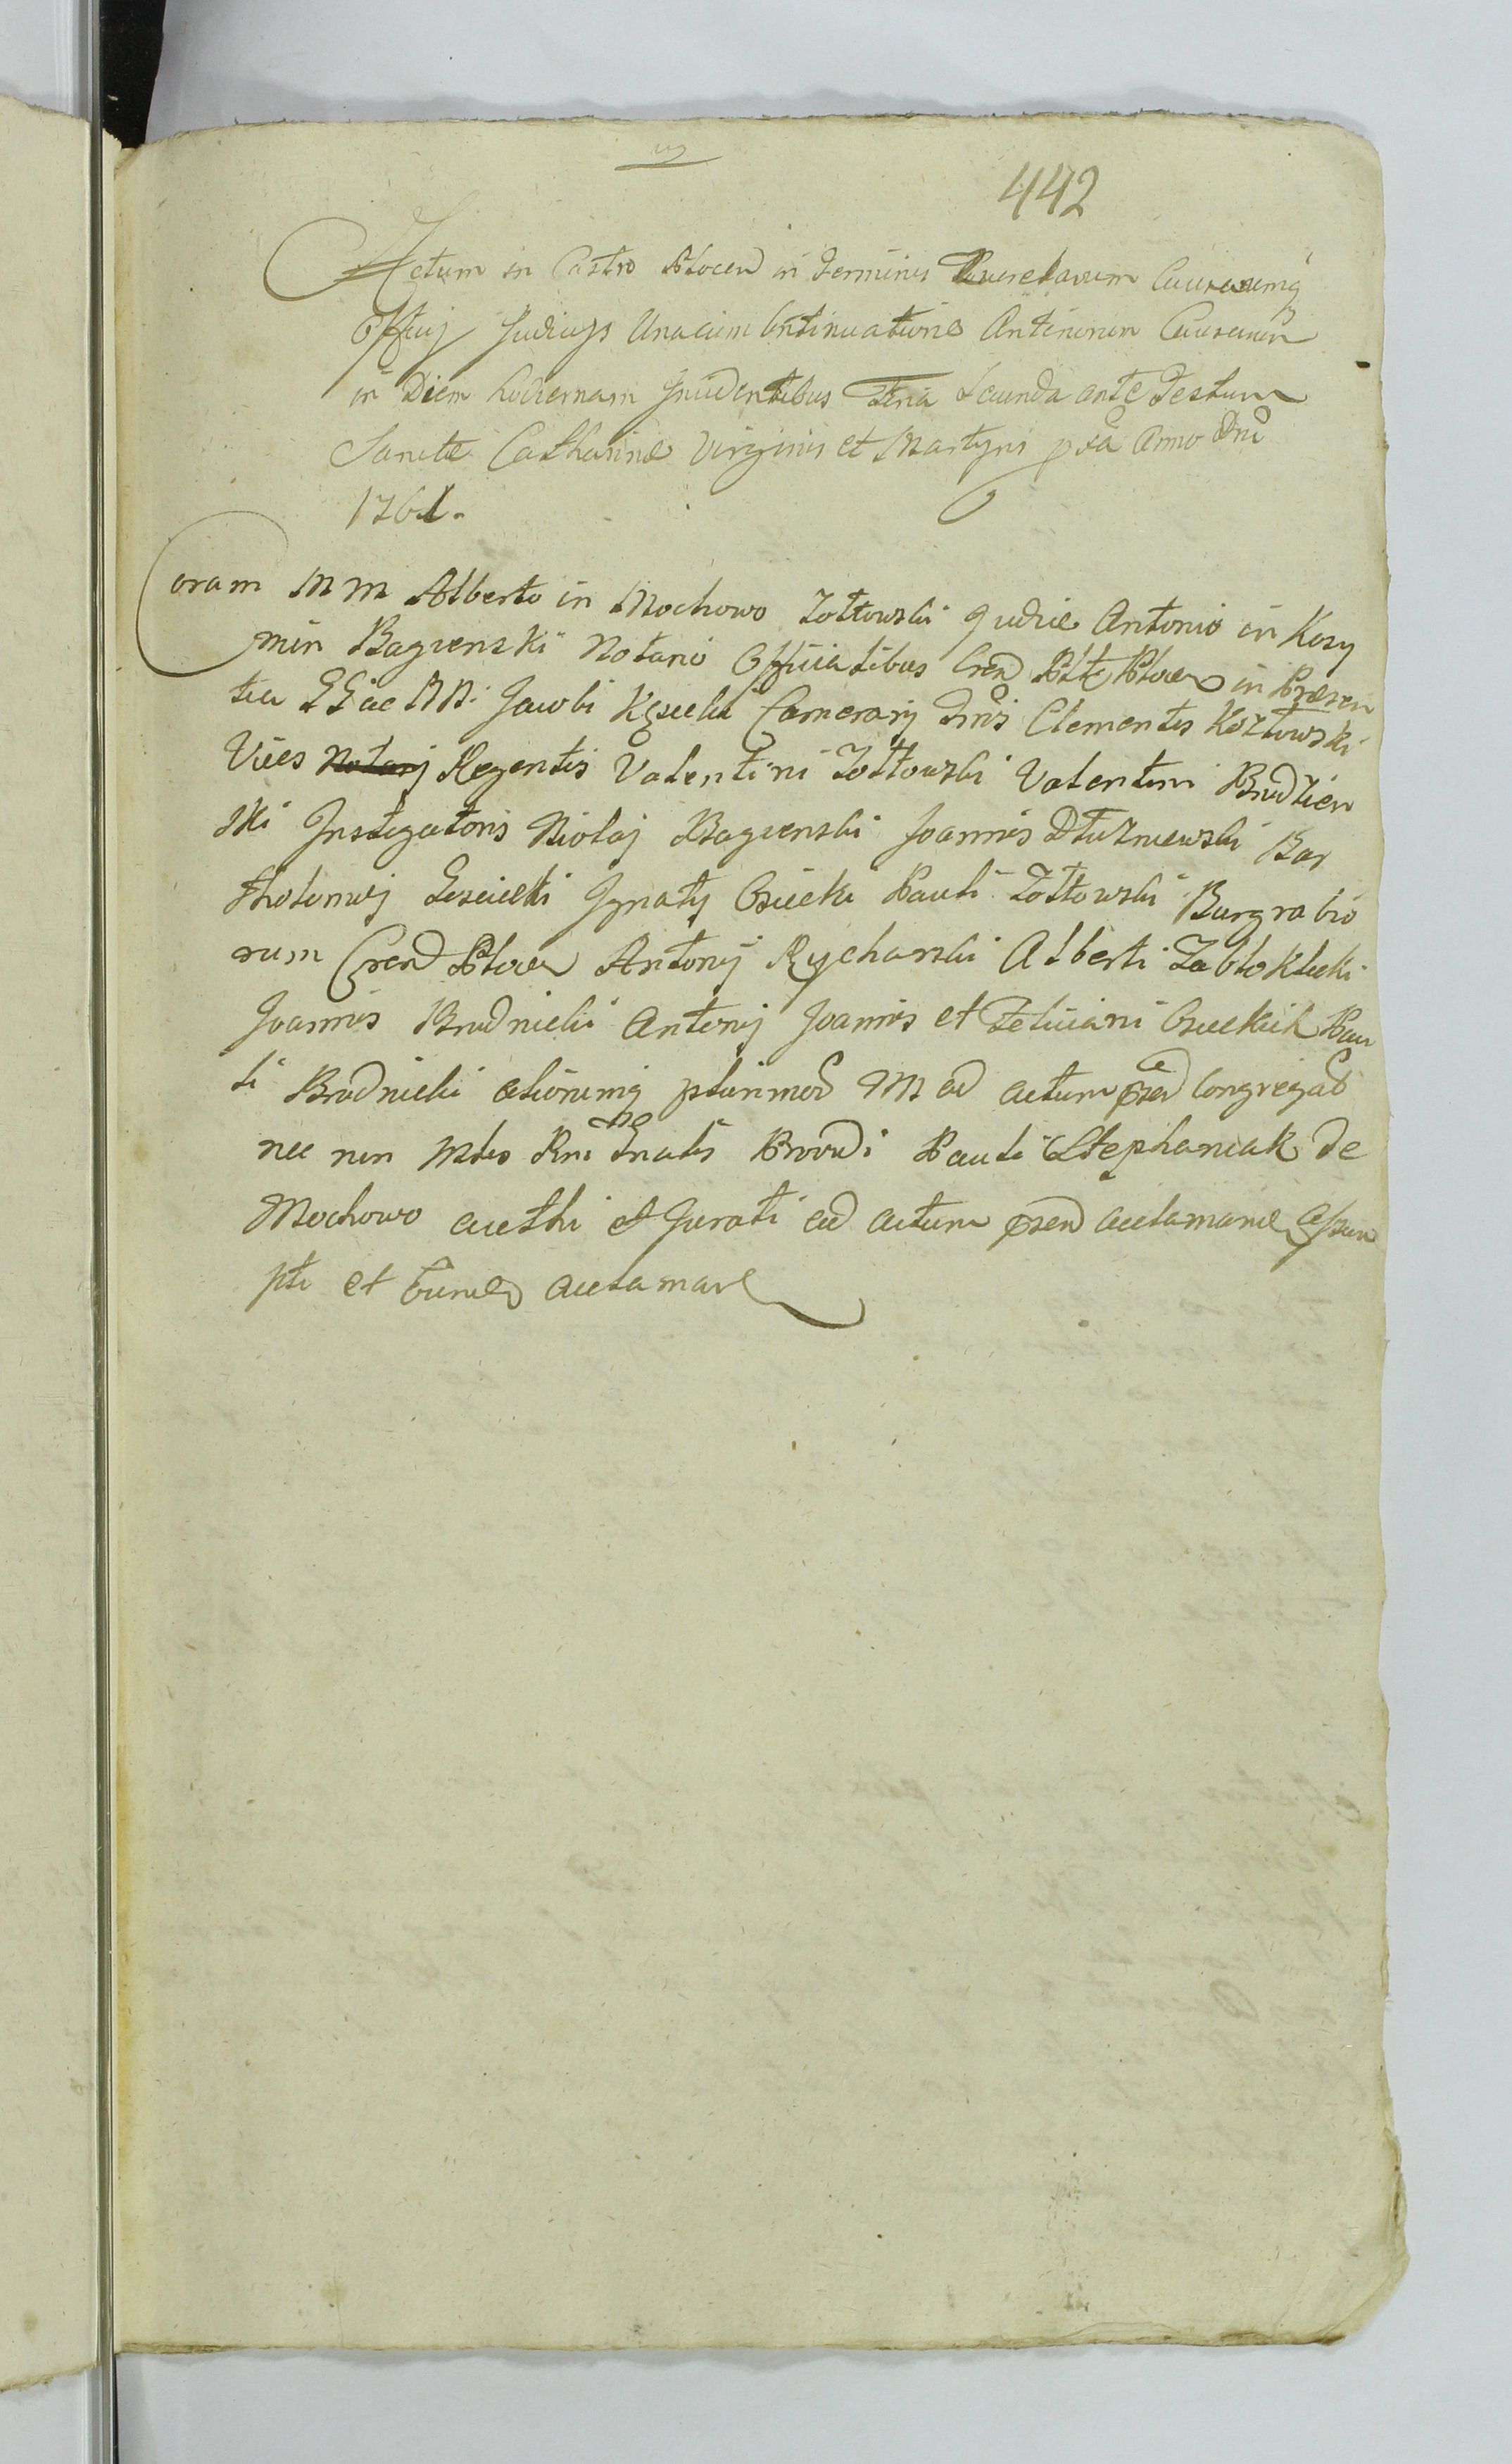 442
Actum in Castro Plocen in Terminis Querelarum Causarumq
Officij Judicijs Unacum Continuatione Anteriorum Causarum
in Diem hodiernam Incidentibus Feria Secunda ante Festum
Sanctæ Catharinæ Virginis et Martyris pxa Anno Dni
1761.
Coram M M Alberto in Mochowo Zołtowski Judice Antonio in Kozy
min Bagienski Notario Officialibus Cren Plocen in Præsen
tia GG ac NN. Jacobi Kęsicki Camerarij Clementis Kozłowski
Vices Notarij Regentis Valentini Zołtowski Valentini Brudzien
ski Instigatoris Nicolaj Bagienski Joannis Dłużniewski Bar
tholomej Gościcki Ignatij Osiecki Pauli Zołtowski Burgrabio
rum Cren Plocen Antonij Rycharski Alberti Zabłoklicki
Joannis Brudnicki Antonij Joannis et Feliciani Osieckich Pau
li Brudnicki aliorumq plurimor M ad actum psen Congregat
nec non Mtis Rni Gnalis Provdi Pauli Stephaniak de
Mochowo authi et Jurati ad actum psen acclamand assum
pti et acclamare